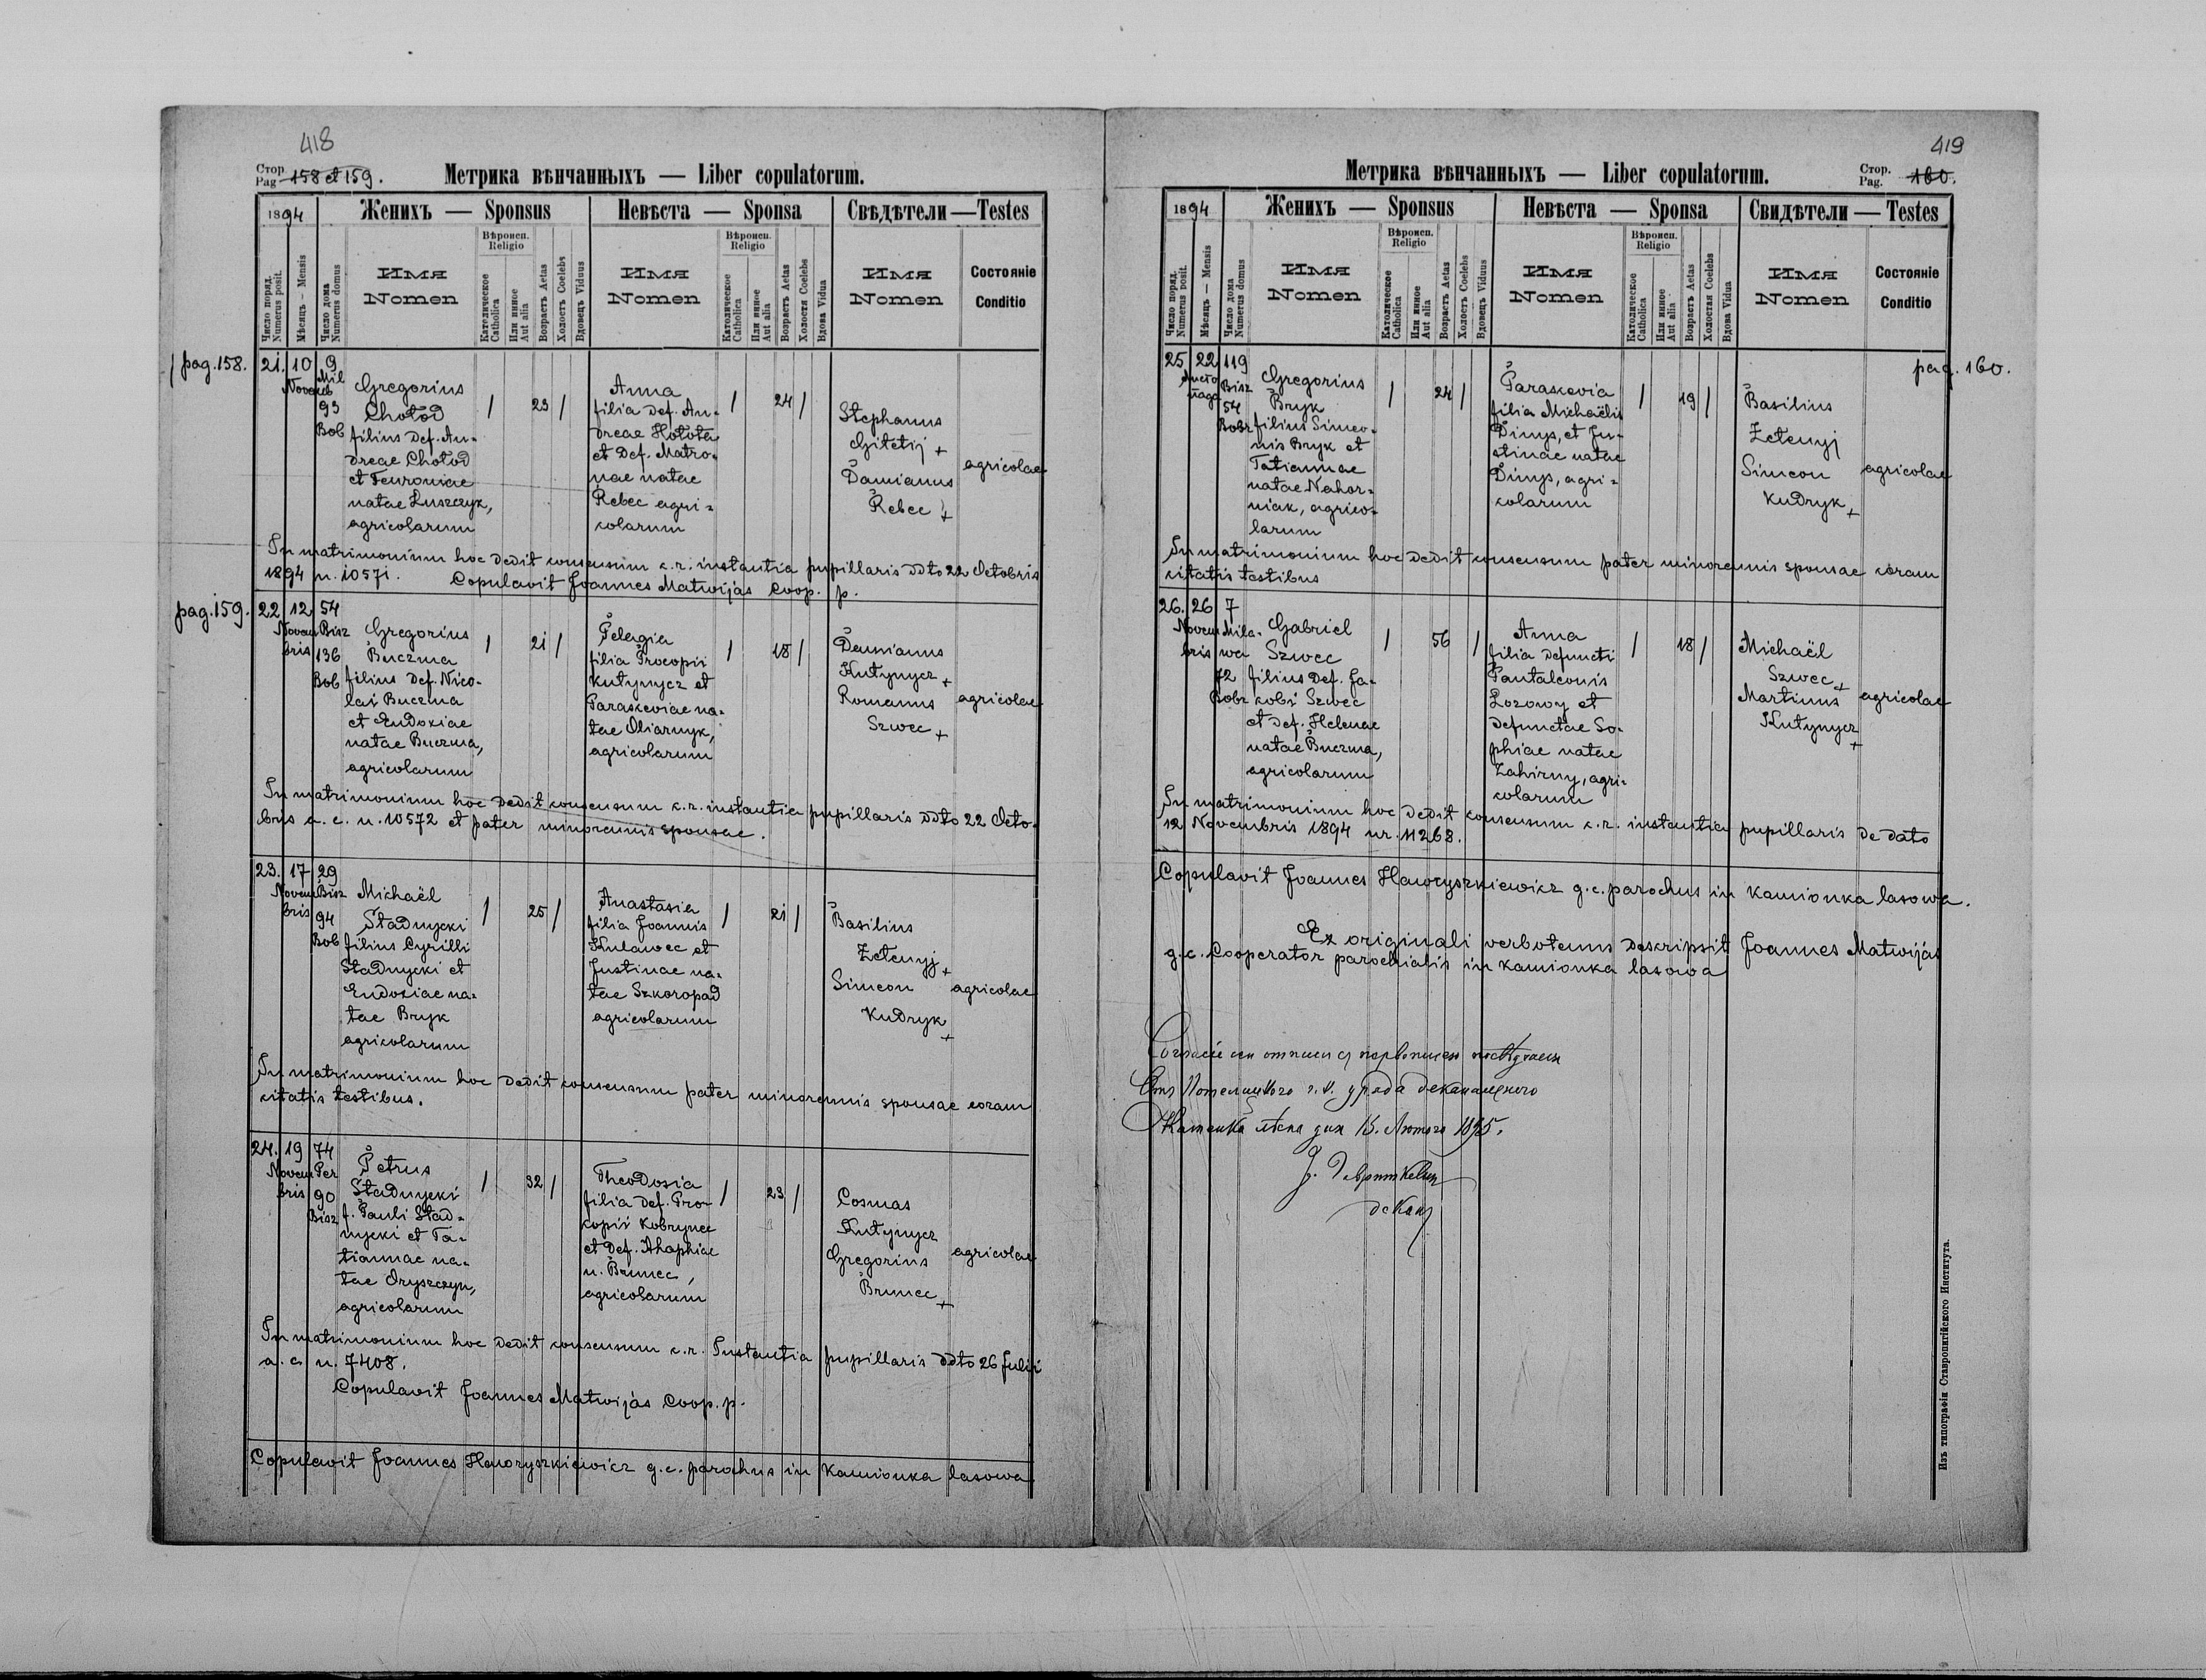 418
Стор.
Pag. 158 et 159.
Метрика вѣнчанныхъ — Liber copulatorum.
1894
Женихъ — Sponsus
Невѣста — Sponsa
Свѣдѣтели — Testes
Число поряд.
Numerus posit.
Мѣсяцъ — Mensis
Число дома
Numerus domus
Имя
Nomen
Вѣроисп.
Religio
Католическое
Catholica
Или инное
Aut alia
Возрастъ Aetas
Холостъ Coelebs
Вдовецъ Viduus
Имя
Nomen
Вѣроисп.
Religio
Католическое
Catholica
Или инное
Aut alia
Возрастъ Aetas
Холостя Coelebs
Вдова Vidua
Имя
Nomen
Состояніе
Conditio
pag. 158.
21. 10 9
Mil
93
Bob
Gregorius
Chotod
filius def. An-
dreae Chotod
et Feuroniae
natae Łuszczyk,
agricolarum
/ 23 /
Anna
filia def. An-
dreae Hołota
et def. Matro-
nae natae
Rebec agri-
colarum
/ 24 /
Stephanus
Gitetij +
Damianus
Rebec +
agricolae
In matrimonium hoc dedit consensum c.r. instantia pupillaris ddto 22 Octobris
1894 n. 10571. Copulavit Joannes Matwijás Coop. p.
pag. 159.
22 12 54
Novem Bisz
bris 136
Bob
Gregorius
Buczma
filius def. Nico-
lai Buczma
et Eudoxiae
natae Buczma,
agricolarum
/ 21 /
Pelagia
filia Procopii
Kutynycz et
Paraskeviae na-
tae Oliarnyk,
agricolarum
/ 18 /
Damianus
Kutynycz +
Romanus
Szwec +
agricolae
In matrimonium hoc dedit consensum c.r. instantia pupillaris ddto 22 Octo-
bris a. c. n. 10572 et pater minorennis sponsae.
23. 17 29
Novem Bisz
bris 94
Bob
Michaël
Stadnycki
filius Cyrilli
Stadnycki et
Eudoxiae na-
tae Bryk
agricolarum
/ 25 /
Anastasia
filia Joannis
Kulawec et
Justinae na-
tae Szkoropad
agricolarum
/ 21 /
Basilius
Zetenyj +
Simeon
Kudryk +
agricolae
In matrimonium hoc dedit consensum pater minorennis sponsae coram
citatis testibus.
24. 19 74
Novem Per
bris 90
Bisz
Petrus
Stadnycki
f. Pauli Stad-
nycki et Ta-
tiannae na-
tae Oryszczyn,
agricolarum
/ 32 /
Theodosia
filia def. Pro-
copii Kobrynec
et def. Ahaphiae
n. Brunec,
agricolarum
/ 23 /
Cosmas
Kutynycz
Gregorius
Brunec +
agricolae
In matrimonium hoc dedit consensum c.r. Instantia pupillaris ddto 26 Julii
a. c. n. 7408.
Copulavit Joannes Matwijás Coop. p.
Copulavit Joannes Hawryszkiewicz g. c. parochus in Kamionka lasowa
419
Метрика вѣнчанныхъ — Liber copulatorum.
Стор.
Pag. 160.
1894
Женихъ — Sponsus
Невѣста — Sponsa
Свидѣтели — Testes
Число поряд.
Numerus posit.
Мѣсяцъ — Mensis
Число дома
Numerus domus
Имя
Nomen
Вѣроисп.
Religio
Католическое
Catholica
Или инное
Aut alia
Возрастъ Aetas
Холостъ Coelebs
Вдовецъ Viduus
Имя
Nomen
Вѣроисп.
Religio
Католическое
Catholica
Или инное
Aut alia
Возрастъ Aetas
Холостя Coelebs
Вдова Vidua
Имя
Nomen
Состояніе
Conditio
pag. 160.
25 22 119
Bisz
54
Bobr
Gregorius
Bryk
filius Simeo-
nis Bryk et
Tatiannae
natae Nahor-
niak, agrico-
larum
/ 24 /
Paraskevia
filia Michaëlis
Dinys, et Ju-
stinae natae
Dinys, agri-
colarum
/ 19 /
Basilius
Zetenyj
Simeon
Kudryk +
agricolae
In matrimonium hoc dedit consensum pater minorennis sponsae coram
citatis testibus
26. 26 7
Novem Mila-
bris wa
72
Bobr
Gabriel
Szwec
filius def. Ja-
cobi Szwec
et def. Helenae
natae Buczma,
agricolarum
/ 56 /
Anna
filia defuncti
Pantaleonis
Łozowy et
defunctae So-
phiae natae
Zahirny, agri-
colarum
/ 18 /
Michaël
Szwec +
Martinus
Kutynycz +
agricolae
In matrimonium hoc dedit consensum c.r. instantia pupillaris de dato
12 Novembris 1894 nr. 11268.
Copulavit Joannes Hawryszkiewicz g. c. parochus in Kamionka lasowa.
Ex originali verbotenus descripsit Joannes Matwijás
g. c. Cooperator parochialis in Kamionka lasowa
уряда деканального
дня 15. Лютого 1895.
декан
Изъ типографіи Ставропигійского Института.